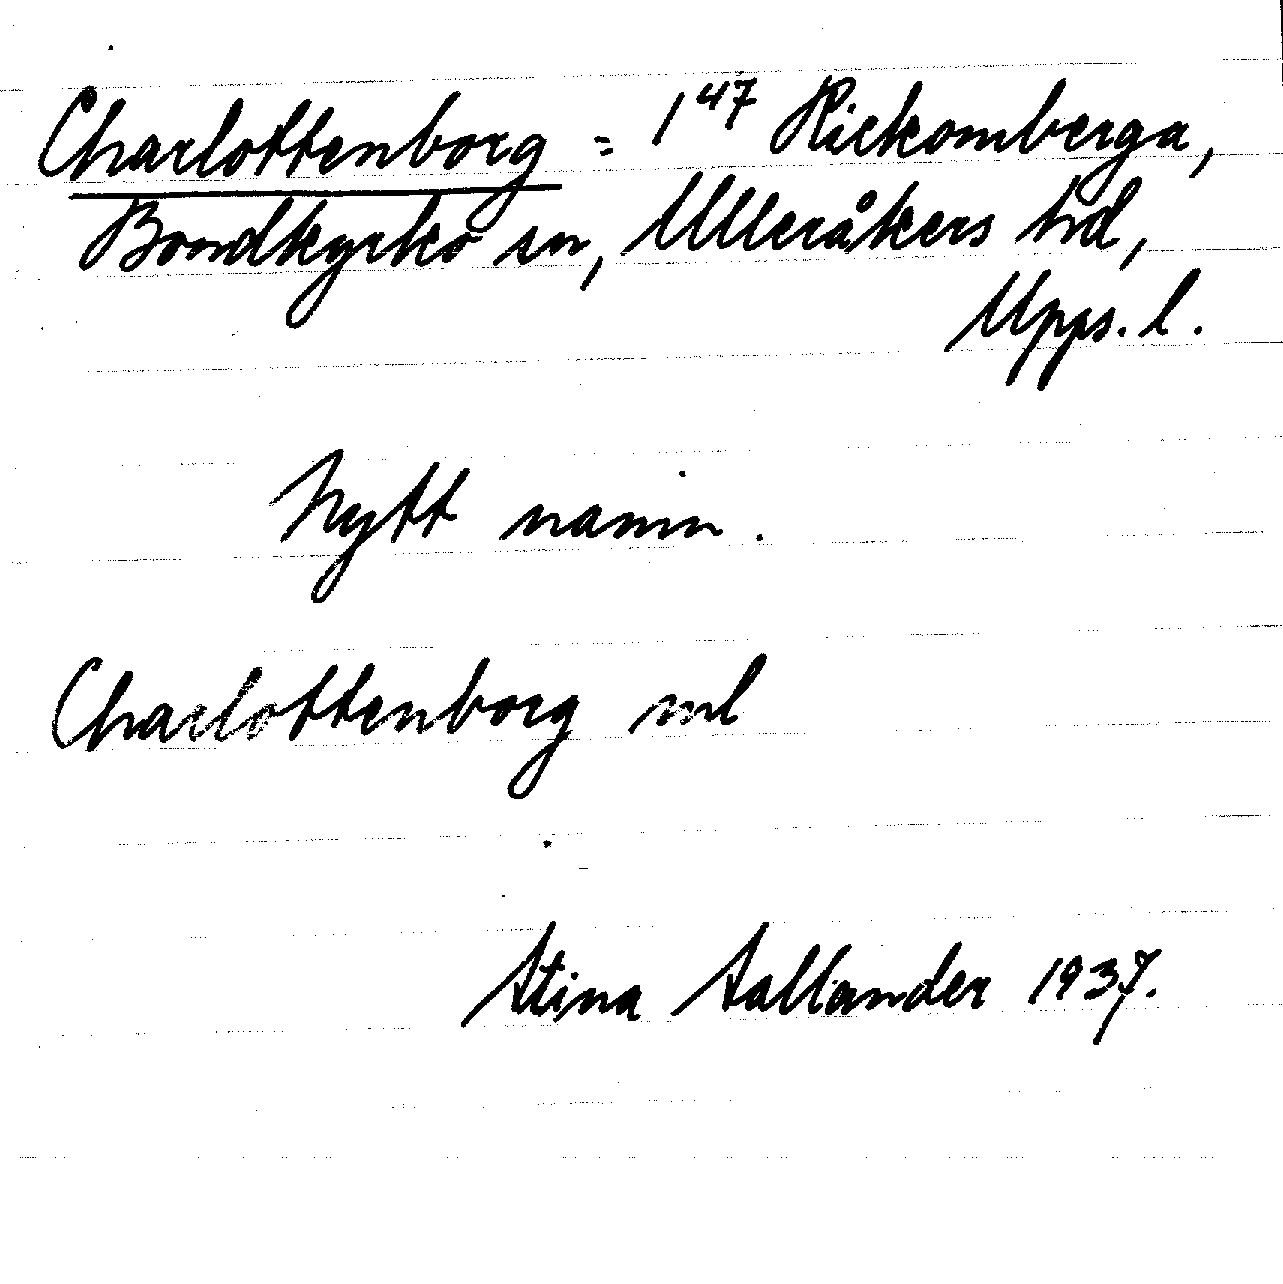 Charlottenborg = 1⁴⁷ Rickomberga,
Bondkyrko sn, Ulleråkers hd,
Upps. l.
Nytt namn.
Charlottenborg ml
Stina Sallander 1937.